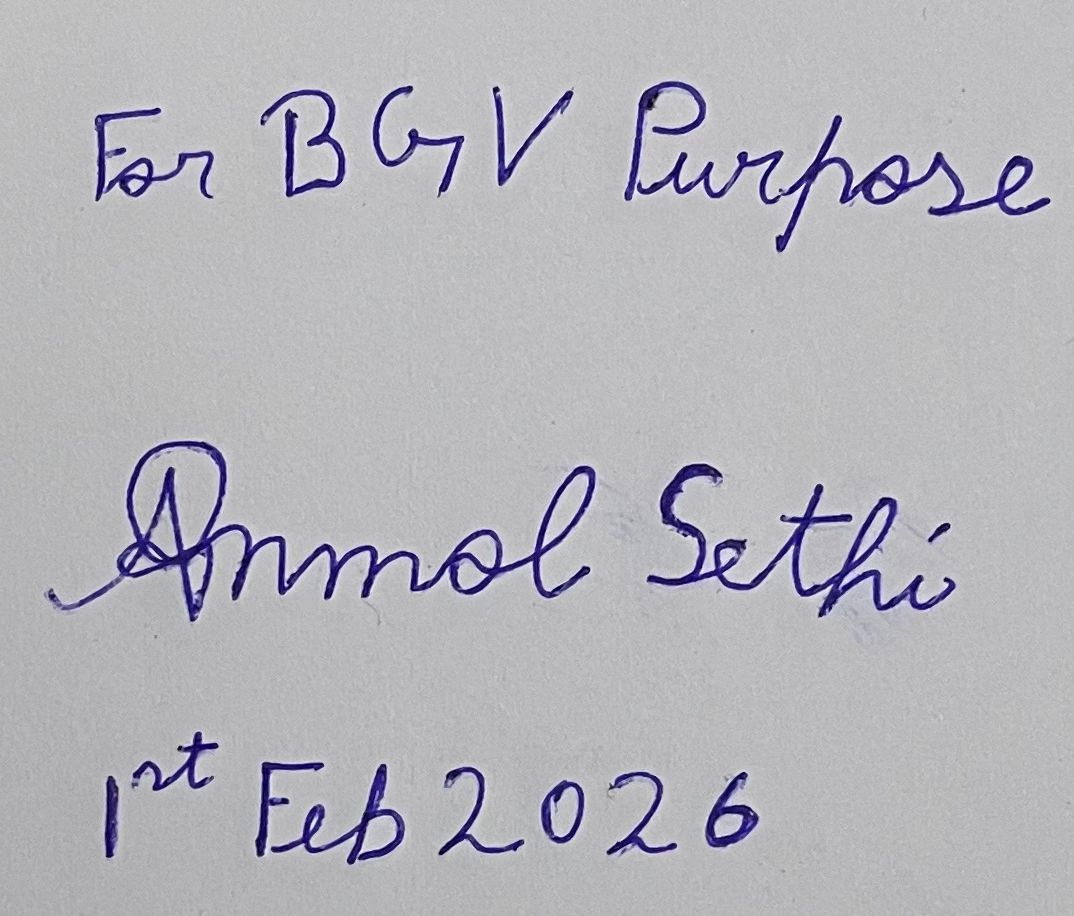 For BGV Purpose
Anmol Sethi
1st Feb 2026